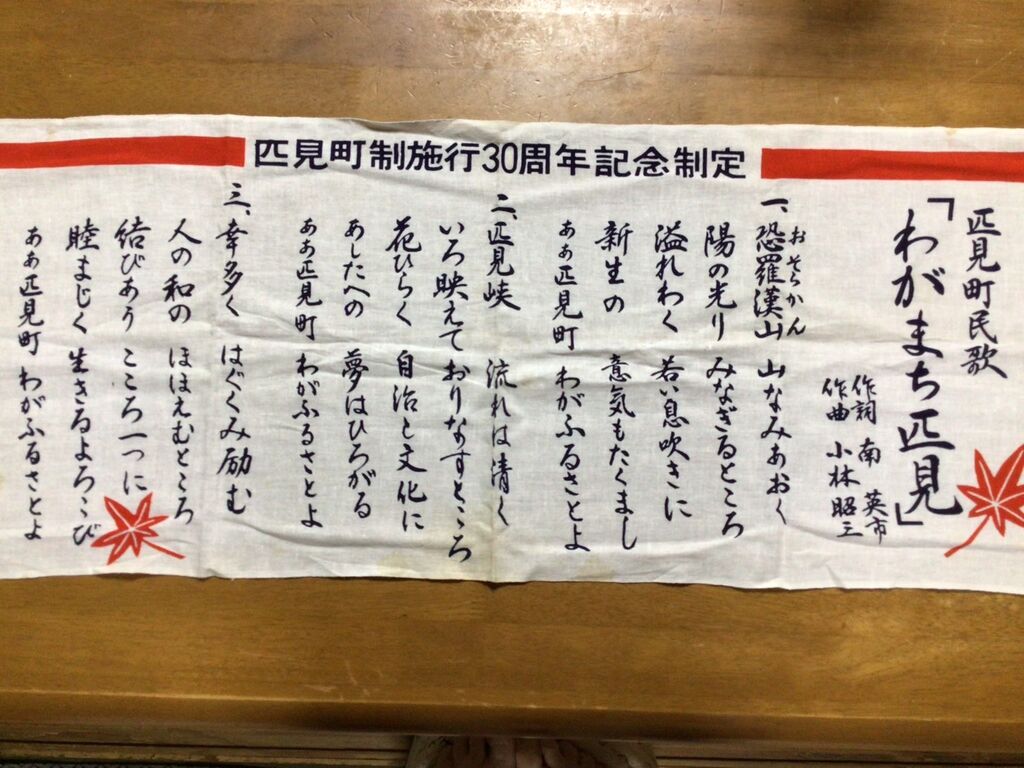 匹見町制施行30周年記念制定
匹見町民歌
「わがまち匹見」
作詞 南 英市
作曲 小林 昭三
おそらかん
一、恐羅漢山 山なみあおく
陽の光り みなぎるところ
溢れわく 若い息吹きに
新生の 意気もたくまし
あぁ匹見町 わがふるさとよ
二、匹見峡 流れは清く
いろ映えて おりなすところ
花ひらく 自治と文化に
あしたへの 夢はひろがる
あぁ匹見町 わがふるさとよ
三、幸多く はぐくみ励む
人の和の ほほえむところ
結びあう こころ一つに
睦まじく 生きるよろこび
あぁ匹見町 わがふるさとよ